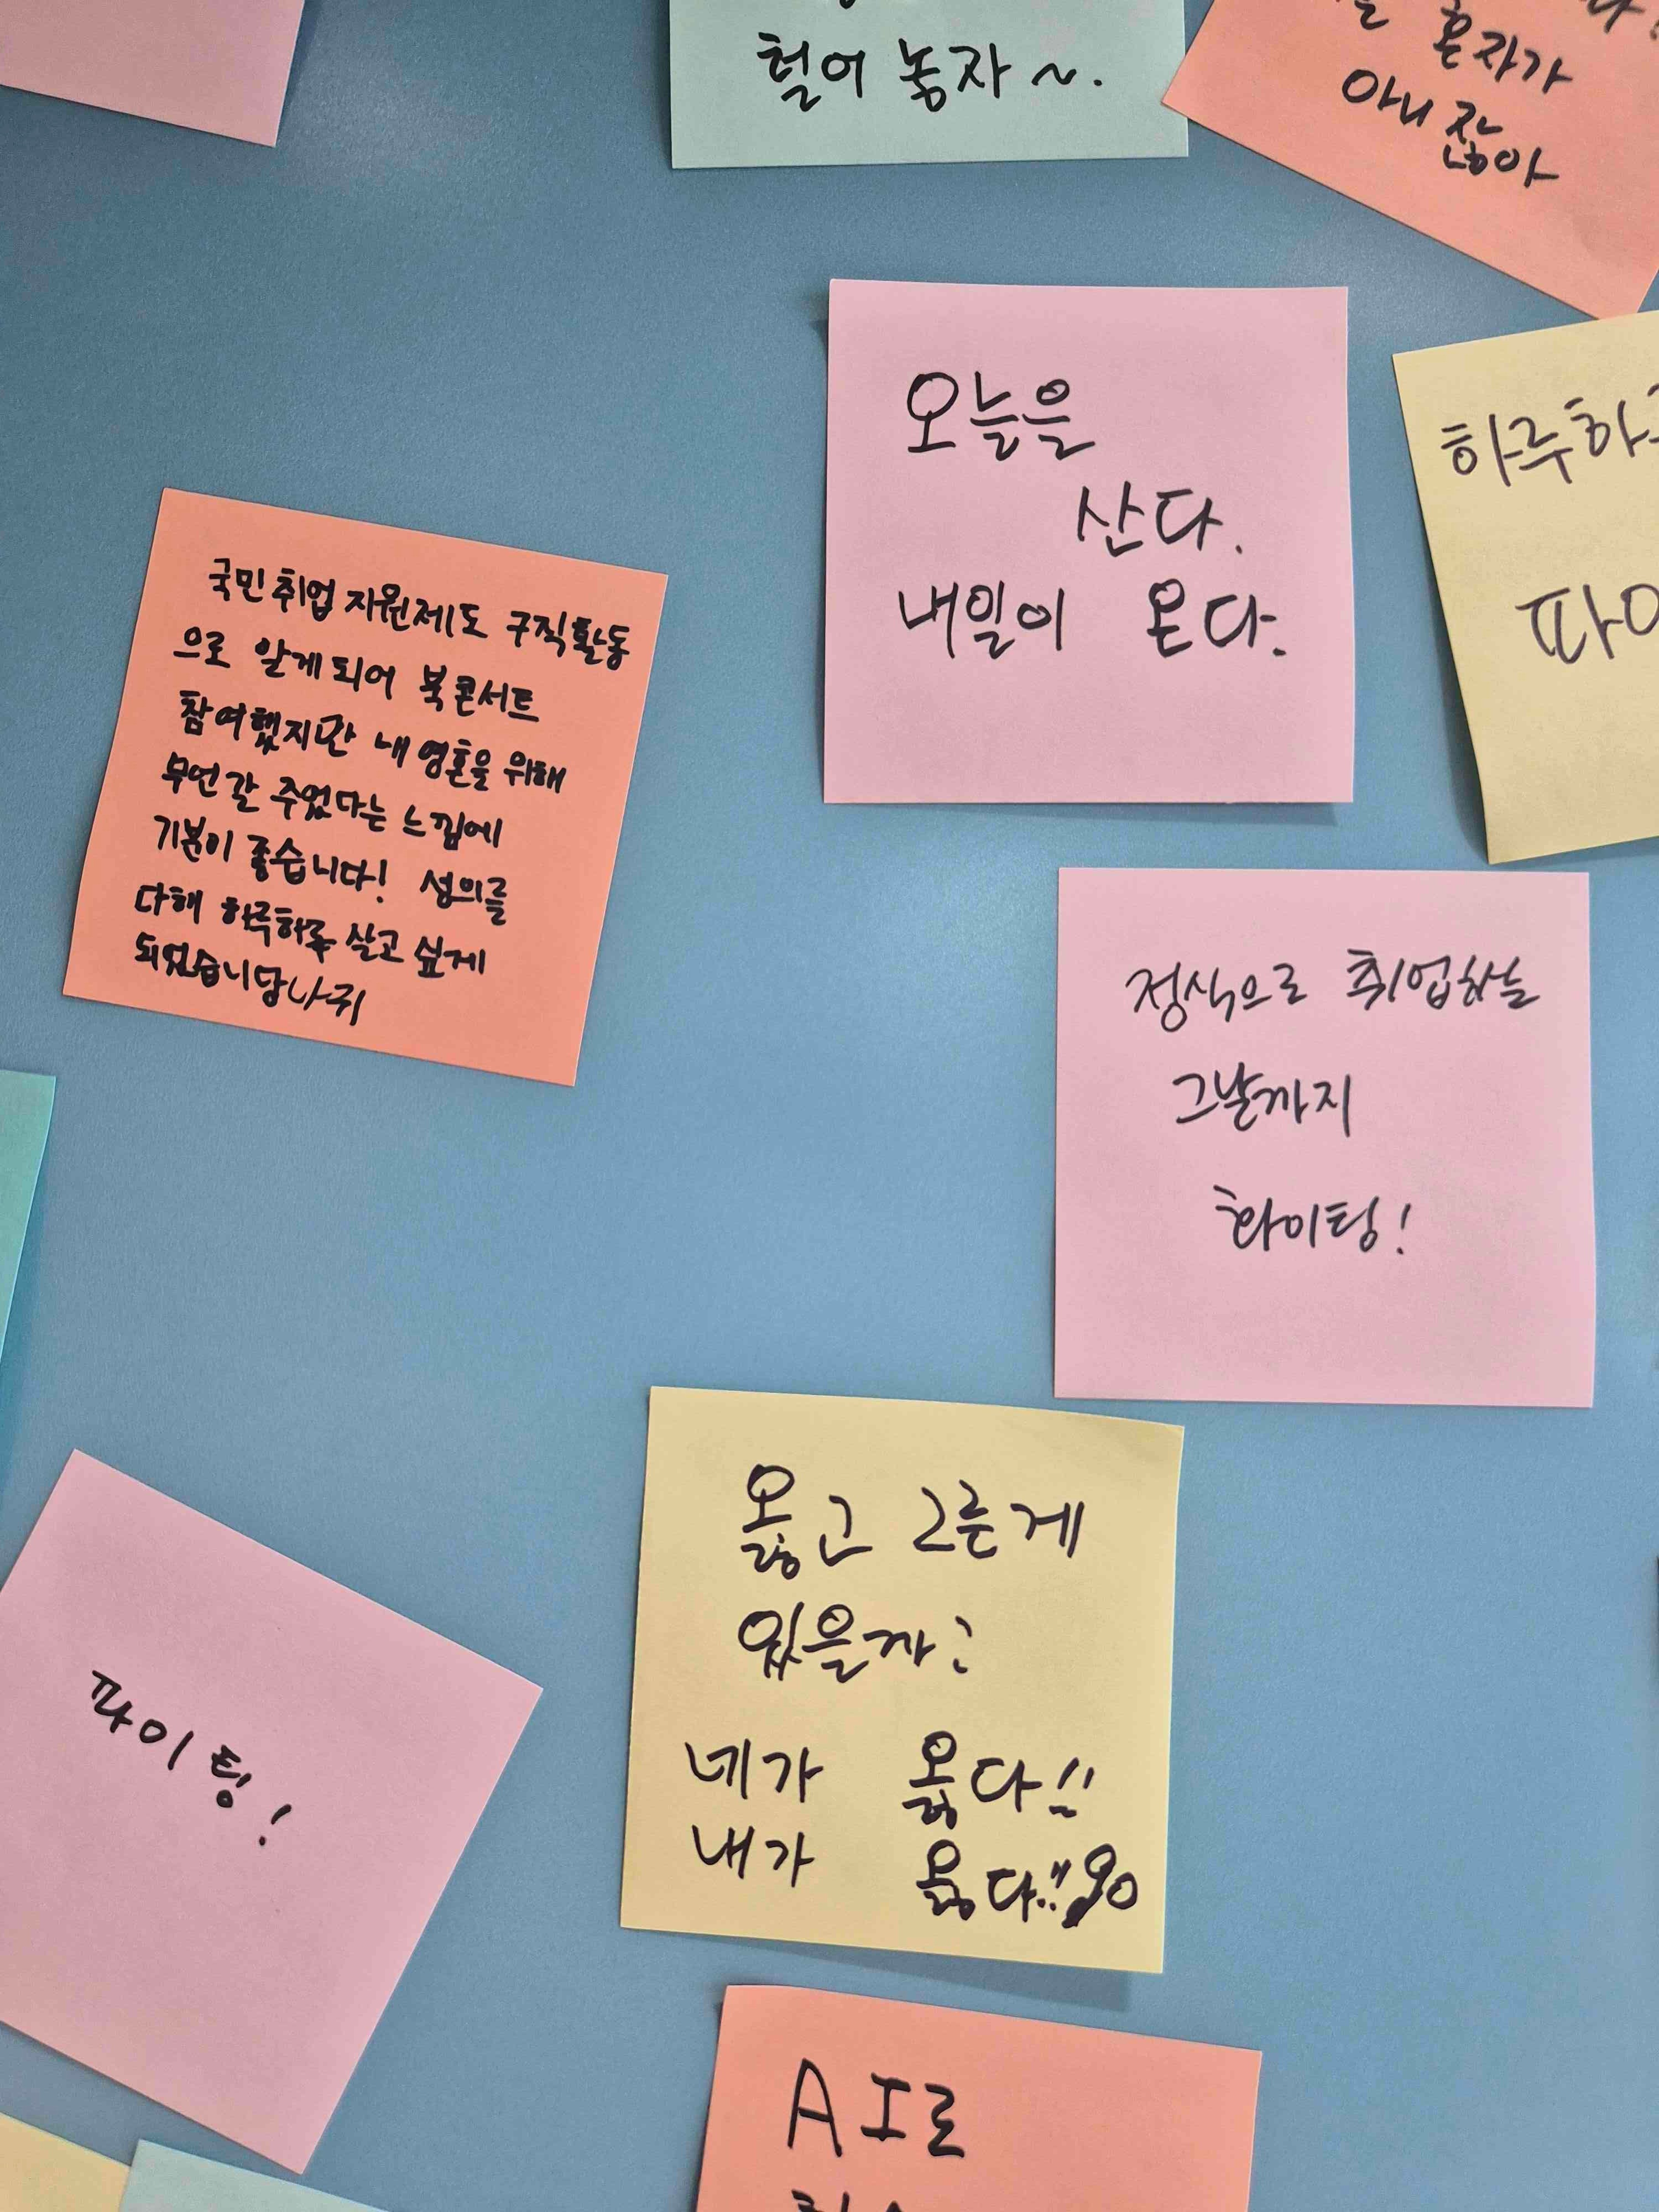 털어 놓자~.
혼자가
아니잖아
오늘을
산다.
내일이 온다.
하루하루
파이
국민취업지원제도 구직활동
으로 알게되어 북콘서트
참여했지만 내 영혼을 위해
무언갈 주었다는 느낌에
기분이 좋습니다! 성의를
다해 하루하루 살고 싶게
되었습니당나귀
정식으로 취업하는
그날까지
화이팅!
옳고 그른게
있을까?
네가 옳다!!
내가 옳다!!
파이팅!
AI로